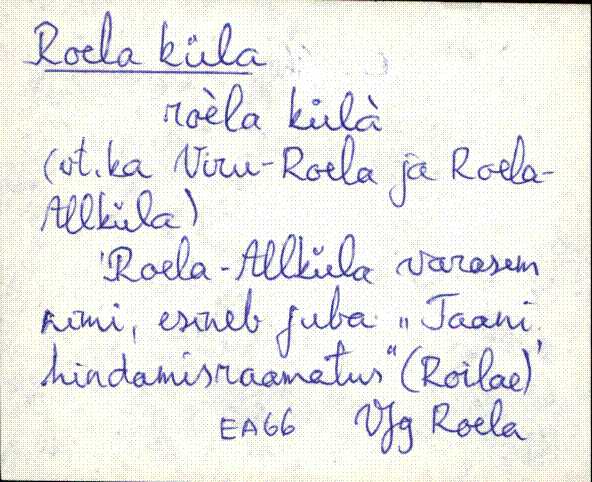 Roela küla
roèla külà
(vt. ka Viru-Roela ja Roela-
Allküla)
'Roela-Allküla varasem
nimi, esineb juba „Taani
hindamisraamatus“ (Roilae)'
EA66 VJg Roela